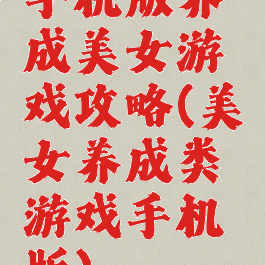 手机版养
成美女游
戏攻略(美
女养成类
游戏手机
版)